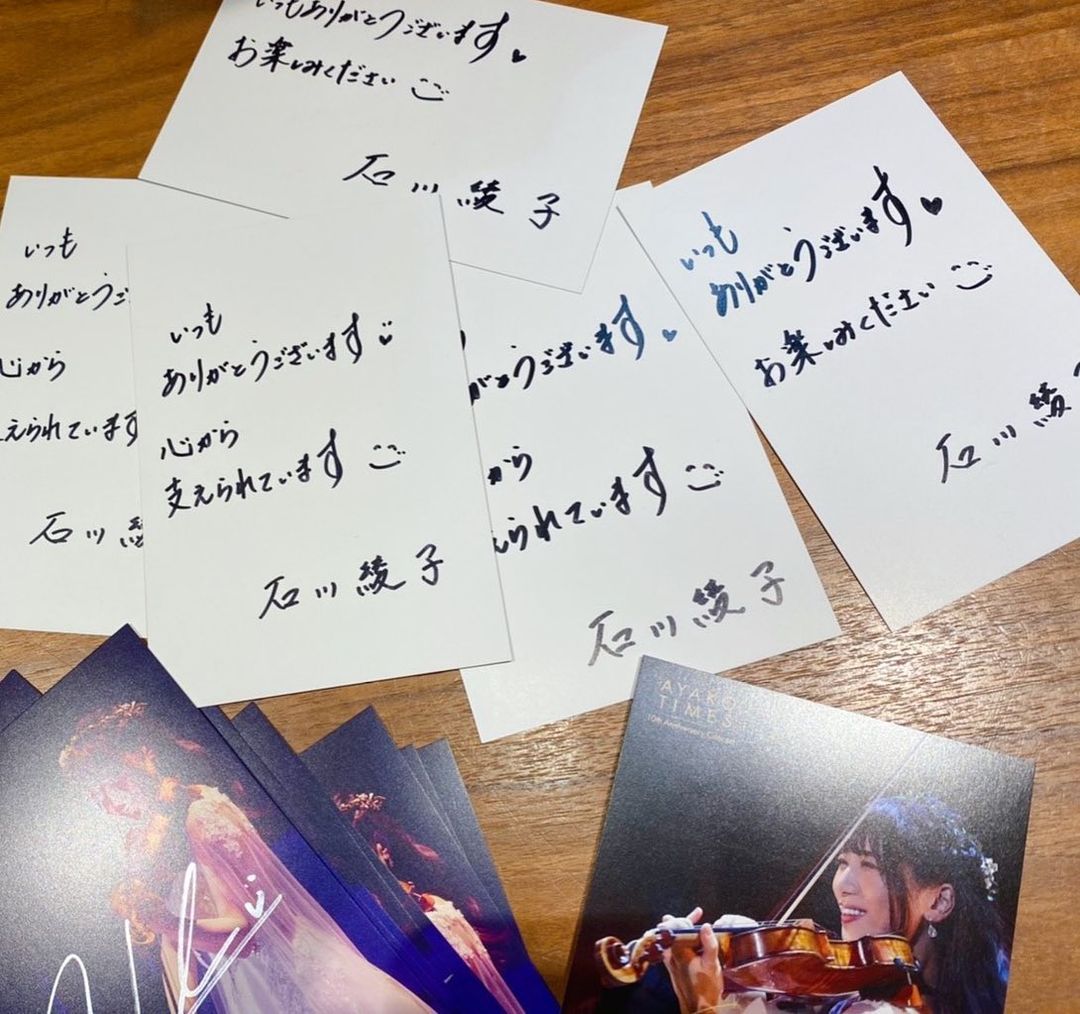 いつもありがとうございます
お楽しみください
石川綾子
いつも
ありがとうご
心から
えられています
石川綾
いつも
ありがとうございます
心から
支えられています
石川綾子
がとうございます
から
えられています
石川綾子
いつも
ありがとうございます
お楽しみください
石川綾
AYAKO
TIMES
10th Anniversary Concert